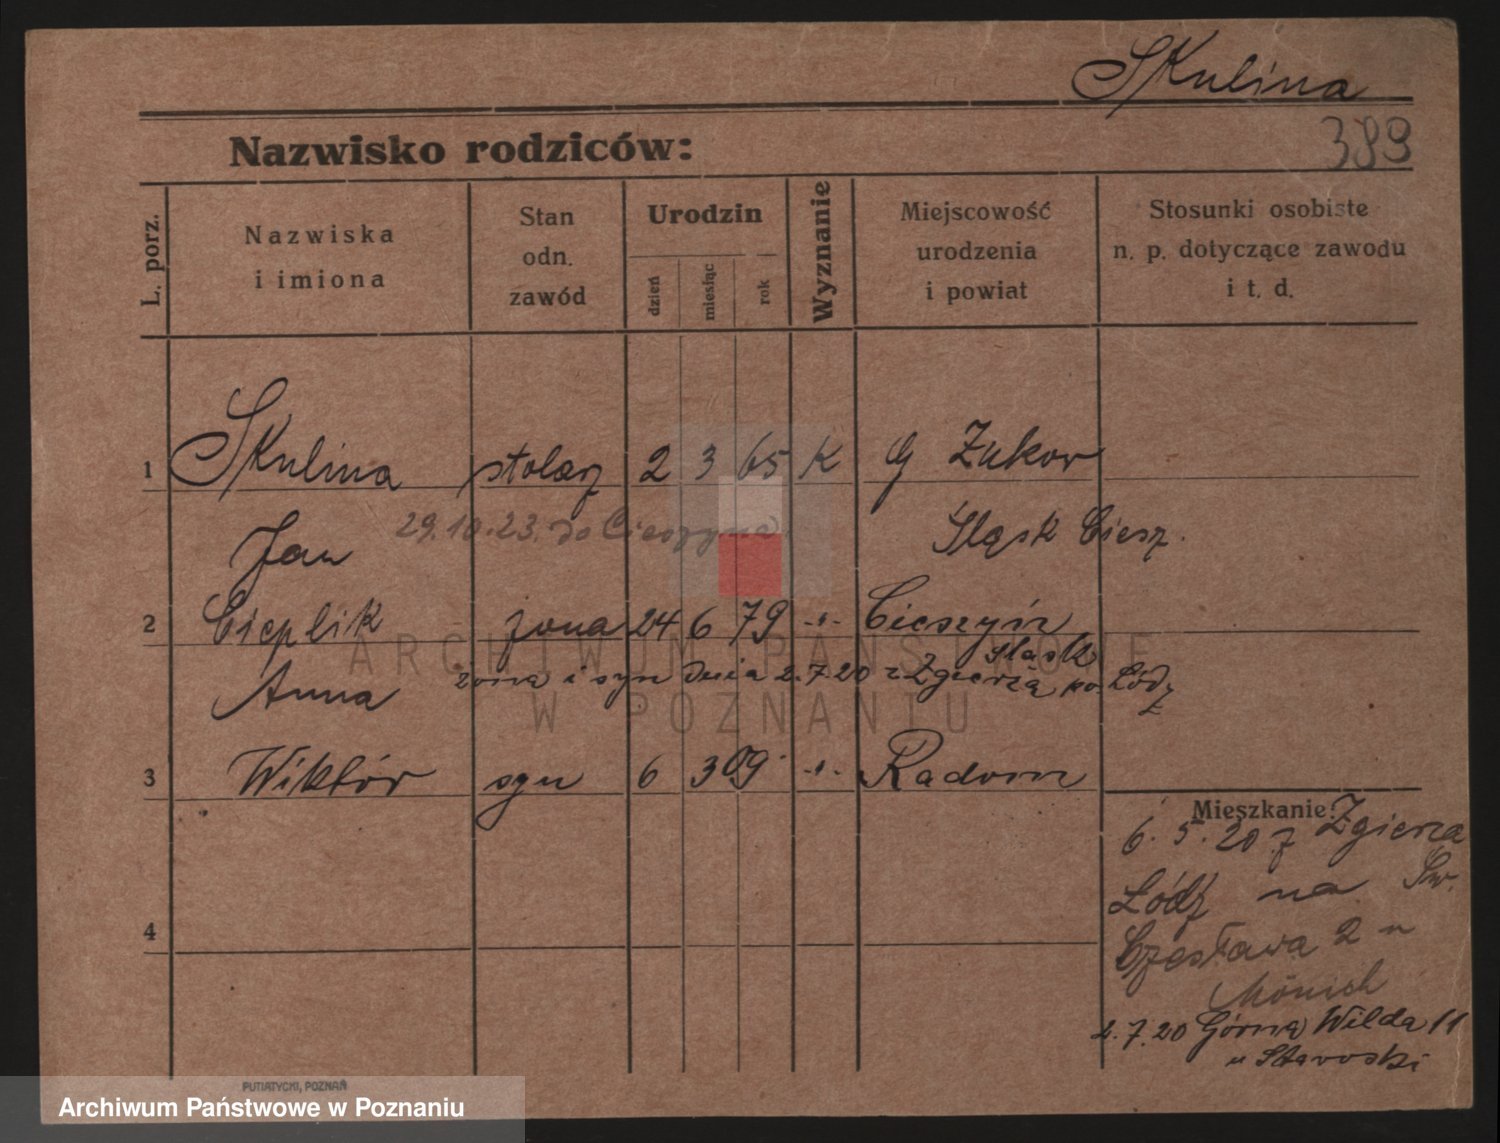 Skulina
389
Nazwisko rodziców:
L. porz.
Nazwiska
i imiona
Stan
odn.
zawód
Urodzin
dzień
miesiąc
rok
Wyznanie
Miejscowość
urodzenia
i powiat
Stosunki osobiste
n. p. dotyczące zawodu
i t. d.
1 Skulina stolarz 2 3 65 K G Zukow
29.10.23. do Cieszyna
Jan
Śląsk Ciesz.
2 Cieplik żona 24 6 79 -"- Cieszyn
Śląsk
Anna
żona i syn dnia 2.7.20 z Zgierza po. Łódź
3 Wiktór syn 6 3 09 -"- Radom
Mieszkanie:
6. 5. 20 z Zgierza
Łódź na Św.
Czesława 2 u
Mönich
2.7.20 Górna Wilda 11
u Staroski
4
ARCHIWUM PAŃSTWOWE
W POZNANIU
PUTIATYCKI, POZNAŃ
Archiwum Państwowe w Poznaniu